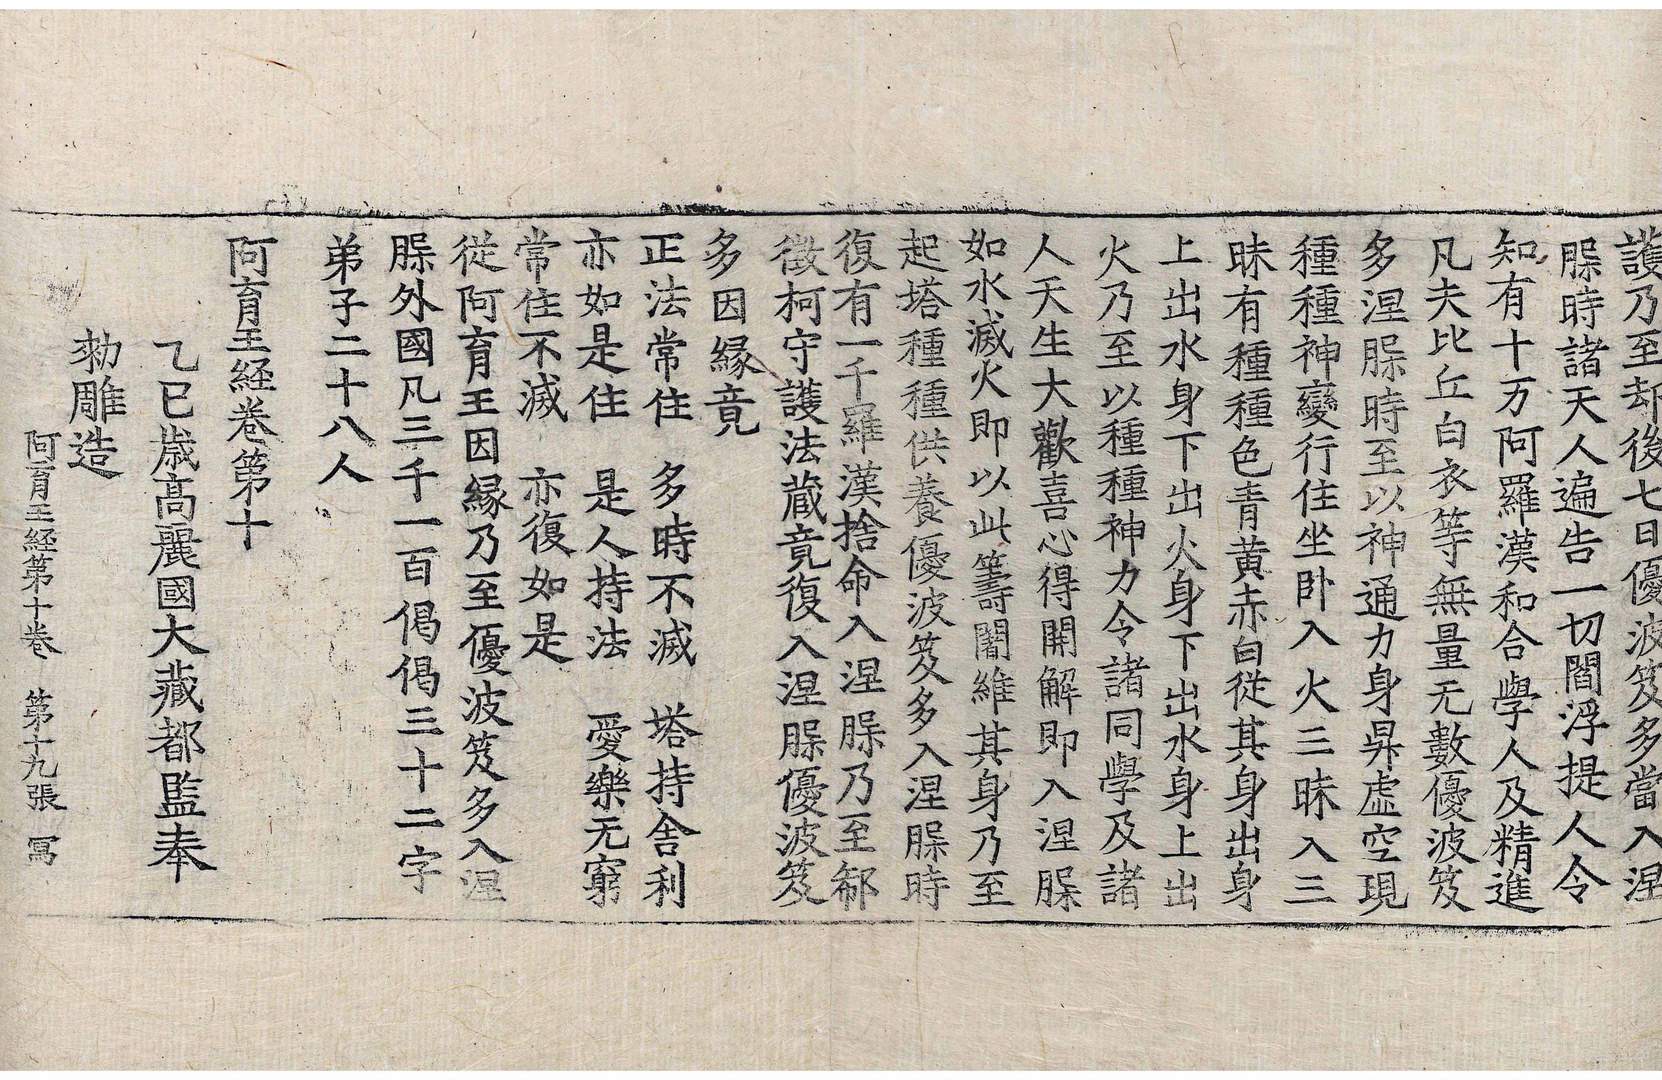 護乃至却後七日優波笈多當入涅
脲時諸天人遍告一切閻浮提人令
知有十万阿羅漢和合學人及精進
凡夫比丘白衣等無量无數優波笈
多涅脲時至以神通力身昇虛空現
種種神變行住坐卧入火三昧入三
昧有種種色青黃赤白從其身出身
上出水身下出火身下出水身上出
火乃至以種種神力令諸同學及諸
人天生大歡喜心得開解即入涅脲
如水滅火即以此籌闍維其身乃至
起塔種種供養優波笈多入涅脲時
復有一千羅漢捨命入涅脲乃至郗
徵柯守護法藏竟復入涅脲優波笈
多因縁竟
正法常住　多時不滅　塔持舍利
亦如是住　是人持法　愛樂无窮
常住不滅　亦復如是
從阿育王因縁乃至優波笈多入涅
脲外國凡三千一百偈偈三十二字
弟子二十八人
阿育王経卷第十
乙巳歳高麗國大藏都監奉
勑雕造
阿育王経第十卷　第十九張　寫